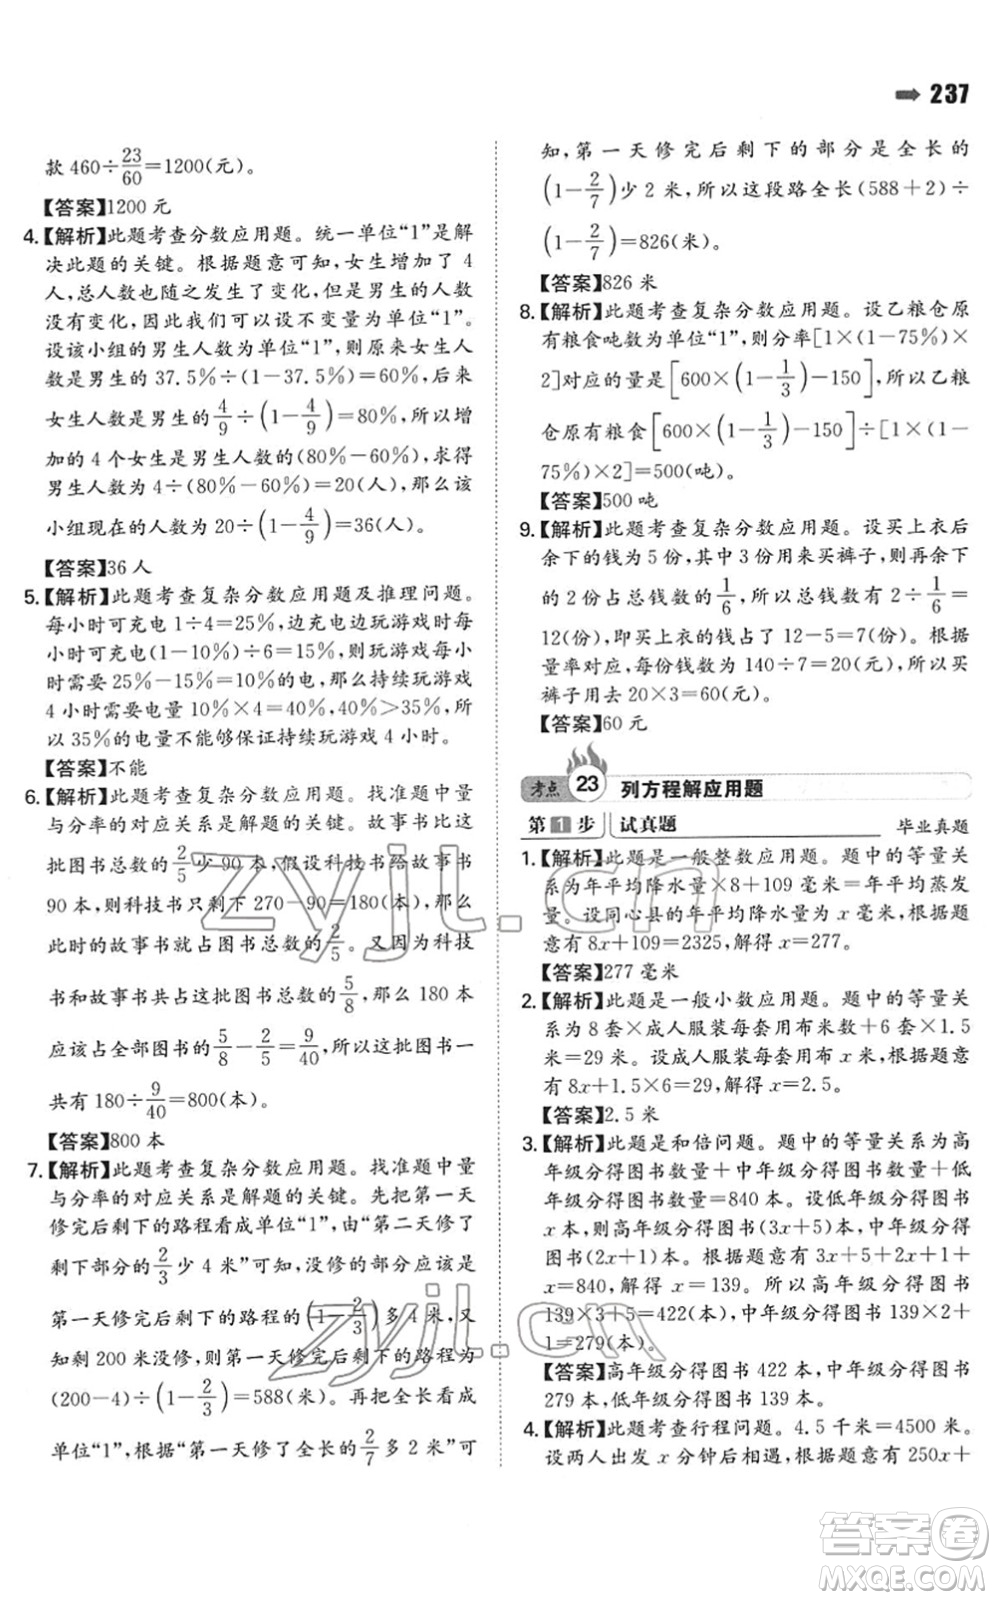 237
款 460÷23/60=1200(元)。
【答案】1200 元
4.【解析】此题考查分数应用题。统一单位“1”是解
决此题的关键。根据题意可知,女生增加了 4
人,总人数也随之发生了变化,但男生的人数
没有变化,因此我们可以设不变量为单位“1”。
设该小组的男生人数为单位“1”,则原来女生
人数是男生的 37.5%÷(1-37.5%)=60%,后来
女生人数是男生的 4/9÷(1-4/9)=80%,所以增
加的 4 个女生是男生人数的(80%-60%),求得
男生人数是 4÷(80%-60%)=20(人),那么该
小组现在的人数为 20÷(1-4/9)=36(人)。
【答案】36 人
5.【解析】此题考查复杂分数应用题及推理问题。
每小时可充电 1÷4=25%,边充电边玩游戏时每
小时可充电(1-10%)÷6=15%,则玩游戏每小
时需要 25%-15%=10%的电,那么持续玩游戏
4 小时需要电量 10%×4=40%,40%>35%,所
以 35%的电量不能够保证持续玩游戏 4 小时。
【答案】不能
6.【解析】此题考查复杂分数应用题。找准题中量
与分率的对应关系是解题的关键。“故事书比这
批图书总数的2/5少 90 本,假设科技书给故事书
90 本,则科技书剩下 270-90=180(本),那么
此时的故事书就占图书总数的2/5。又因为科技
书和故事书共占这批图书总数的5/8,那么 180 本
应该占全部图书的5/8-2/5=9/40,所以这批图书一
共有 180÷9/40=800(本)。
【答案】800 本
7.【解析】此题考查复杂分数应用题。找准题中量
与分率的对应关系是解题的关键。先把第一天
修完后剩下的路程看成单位“1”,由“第二天修了
剩下部分的2/3少 4 米”可知,没修的部分应该是
第一天修完后剩下的路程的(1-2/3)多 4 米,又
知剩 200 米没修,则第一天修完后剩下的路程为
(200-4)÷(1-2/3)=588(米)。再把全长看成
单位“1”,根据“第一天修了全长的2/7多 2 米”可
知,第一天修完后剩下的部分是全长的
(1-2/7)少 2 米,所以这段路全长(588+2)÷
(1-2/7)=826(米)。
【答案】826 米
8.【解析】此题考查复杂分数应用题。设乙粮仓原
有粮食吨数为单位“1”,则分率[1×(1-75%)×
2]对应的量是[600×(1-1/3)-150],所以乙粮
仓原有粮食[600×(1-1/3)-150]÷[1×(1-
75%)×2]=500(吨)。
【答案】500 吨
9.【解析】此题考查复杂分数应用题。设买上衣后
余下的钱为 5 份,其中 3 份用来买裤子,则剩下
的 2 份占总钱数的1/6,所以总钱数有 2÷1/6=
12(份),即买上衣的钱占了 12-5=7(份)。根据
量率对应,每份钱数为 140÷7=20(元),所以买
裤子用去 20×3=60(元)。
【答案】60 元
考点 23 列方程解应用题
第 1 步 试真题 毕业真题
1.【解析】此题是一般整数应用题。题中的等量关
系为年平均降水量×8+109 毫米=年平均蒸发
量。设同心县的年平均降水量为 x 毫米,根据题
意有 8x+109=2325,解得 x=277。
【答案】277 毫米
2.【解析】此题是一般小数应用题。题中的等量关
系为 8 套×成人服装每套用布米数+6 套×1.5
米=29 米。设成人服装每套用布 x 米,根据题意
有 8x+1.5×6=29,解得 x=2.5。
【答案】2.5 米
3.【解析】此题是和倍问题。题中的等量关系为高
年级分得图书数量+中年级分得图书数量+低
年级分得图书数量=840 本。设低年级分得图书
x 本,则高年级分得图书(3x+5)本,中年级分得
图书(2x+1)本。根据题意有 3x+5+2x+1+
x=840,解得 x=139。所以高年级分得图书
139×3+5=422(本),中年级分得图书 139×2+
1=279(本)。
【答案】高年级分得图书 422 本,中年级分得图书
279 本,低年级分得图书 139 本。
4.【解析】此题考查行程问题。4.5 千米=4500 米。
设两人出发 x 分钟后相遇,根据题意有 250x+
zyjl.cn
zyjl.cn
答案卷
MXQE.COM